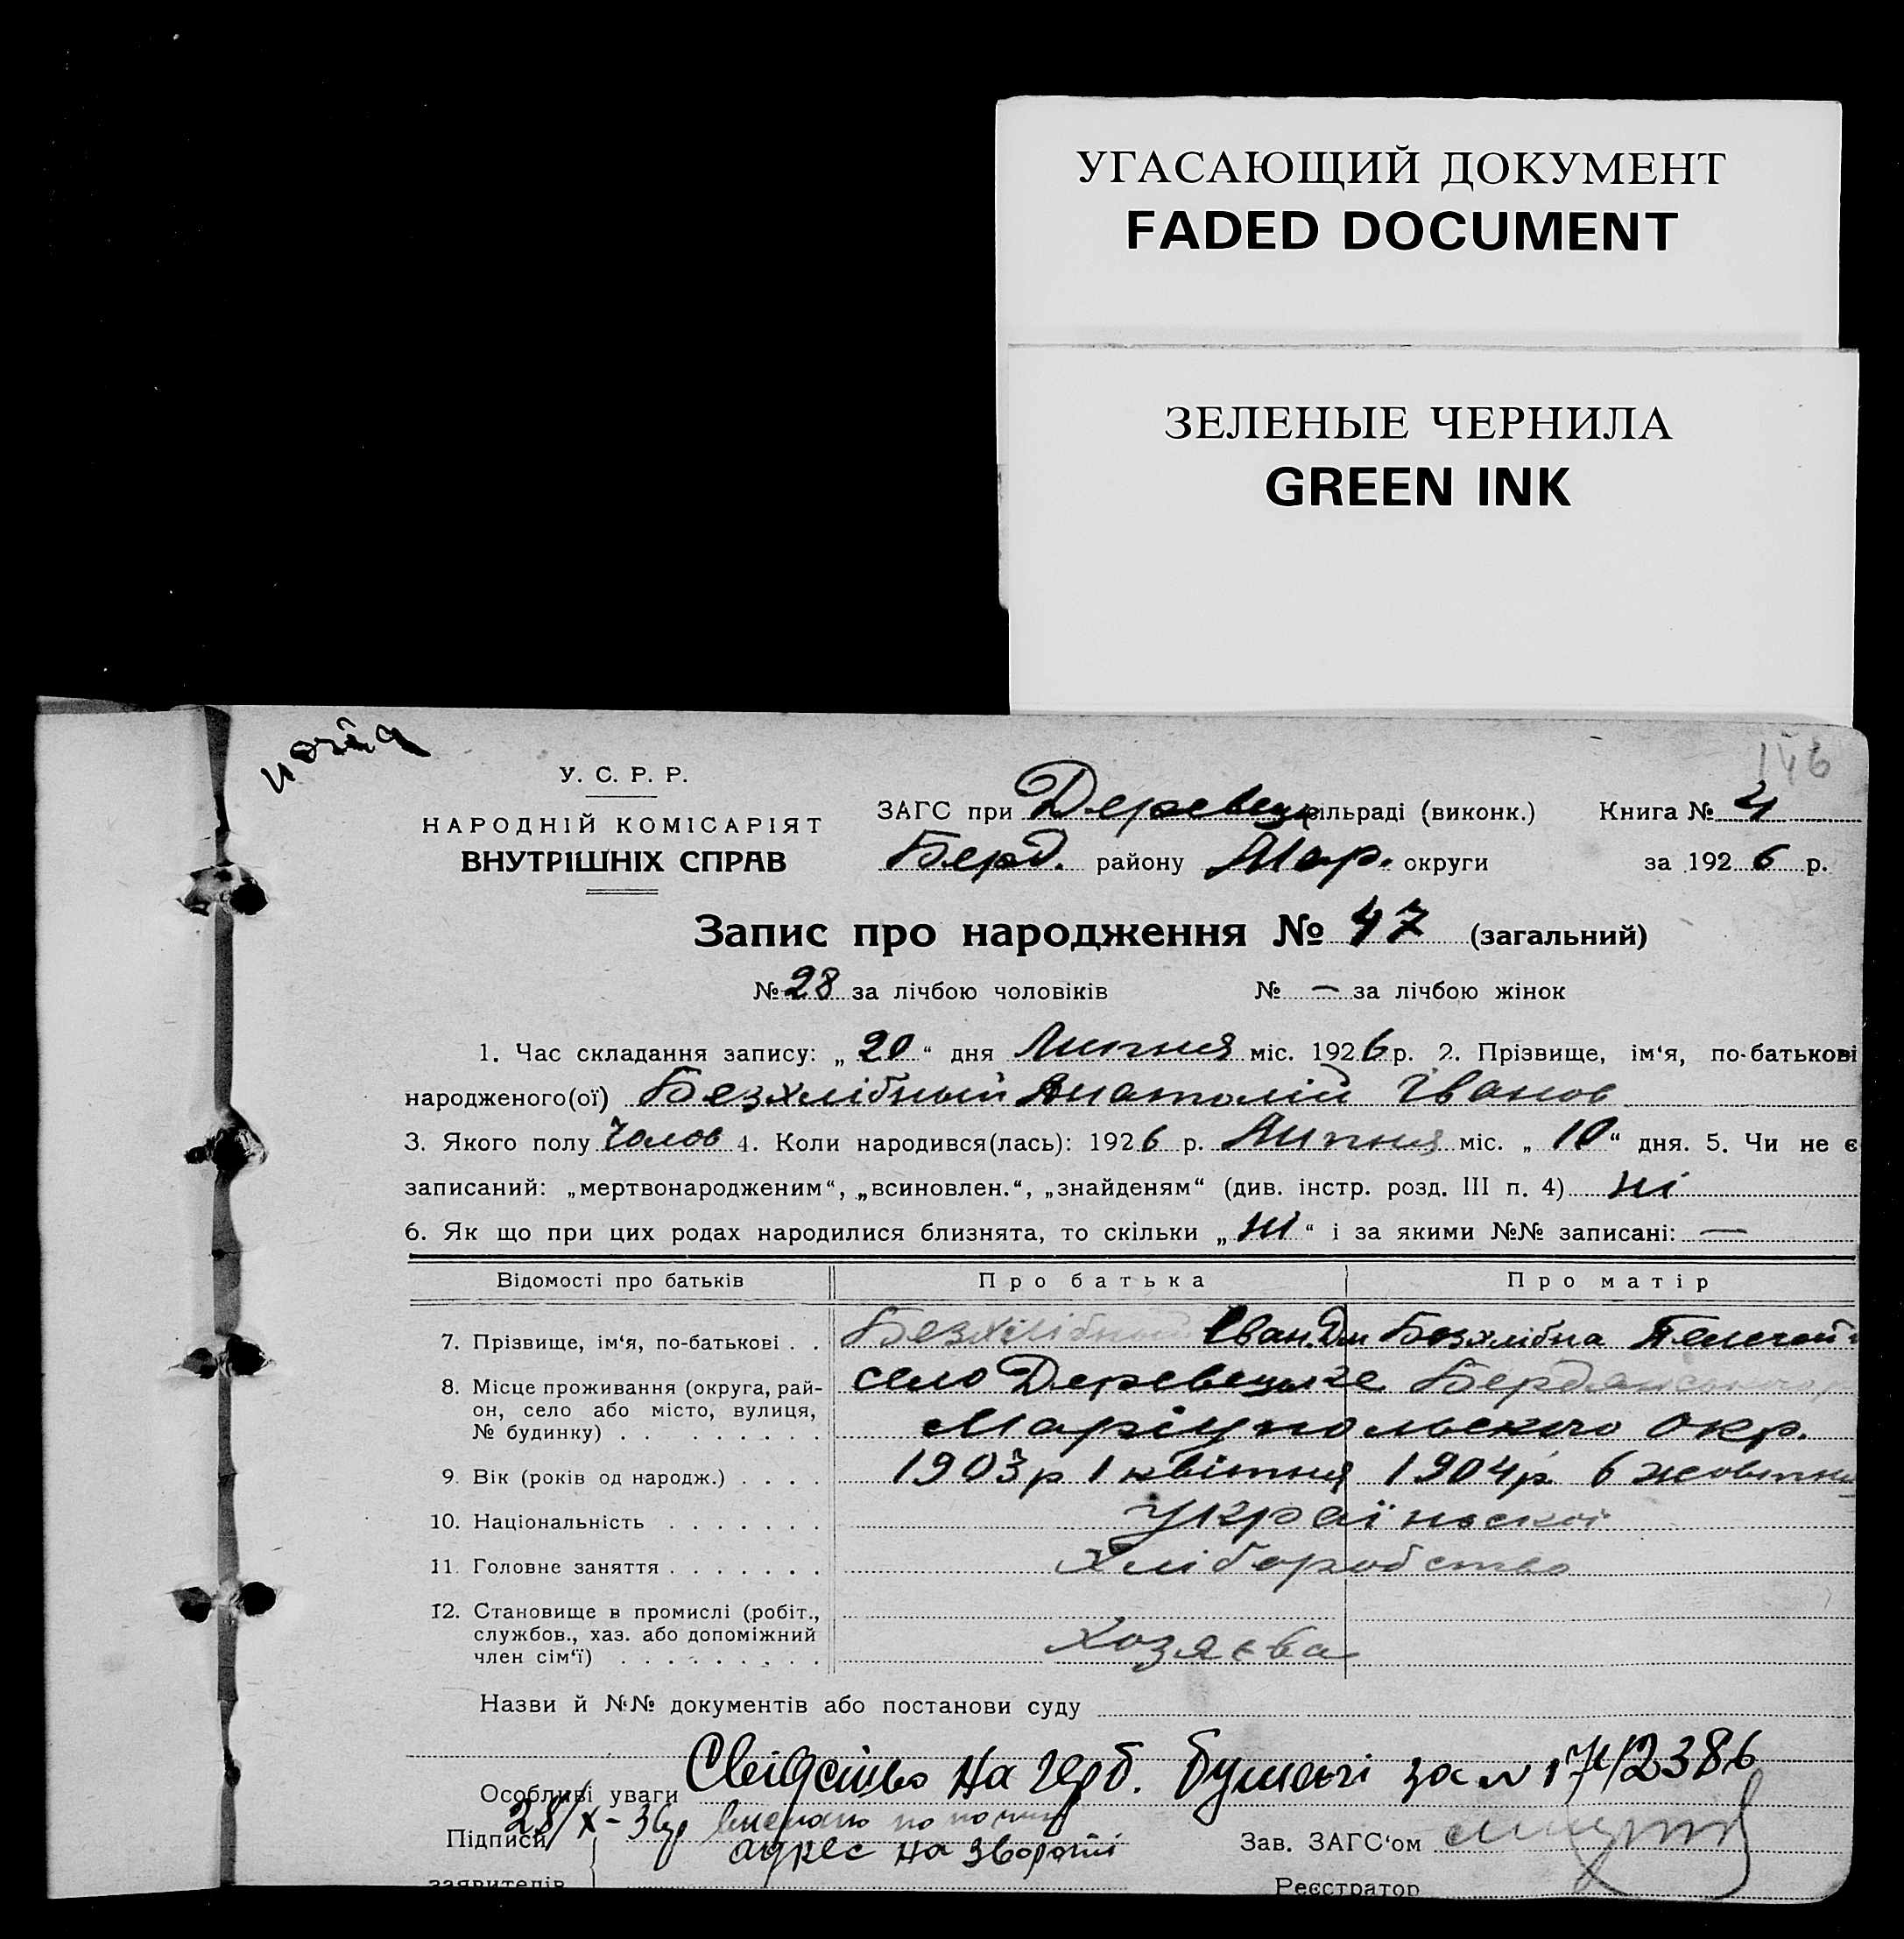 УГАСАЮЩИЙ ДОКУМЕНТ
FADED DOCUMENT
ЗЕЛЕНЫЕ ЧЕРНИЛА
GREEN INK
146
У. С. Р. Р.
НАРОДНІЙ КОМІСАРІЯТ
ВНУТРІШНІХ СПРАВ
ЗАГС при Деревецк сільраді (виконк.) Книга № 4
Берд. району Мар. округи за 1926 р.
Запис про народження № 47 (загальний)
№ 28 за лічбою чоловіків № — за лічбою жінок
1. Час складання запису: „20“ дня Липня міс. 1926 р. 2. Прізвище, ім‘я, по-батькові
народженого(ої) Безхлібный Анатолій Іванов
3. Якого полу Чолов 4. Коли народився(лась): 1926 р. Липня міс. „10“ дня. 5. Чи не є
записаний: „мертвонародженим“, „всиновлен.“, „знайденям“ (див. інстр. розд. III п. 4) ні
6. Як що при цих родах народилися близнята, то скільки „ні“ і за якими №№ записані: —
Відомості про батьків Про батька Про матір
7. Прізвище, ім‘я, по-батькові . . Безхлібный Іван Дм Безхлібна
8. Місце проживання (округа, рай- село Деревецьке Бердянського р
он, село або місто, вулиця,
№ будинку) . . . . . . . . . Маріупольского окр.
9. Вік (років од народж.) . . . . 1903 р 1 квітня 1904 р 6 жовтня
10. Національність . . . . . . . Української
11. Головне заняття . . . . . . . Хліборобство
12. Становище в промислі (робіт.,
службов., хаз. або допоміжний
член сім‘ї) . . . . . . . . . Хозяєва
Назви й №№ документів або постанови суду
Особливі уваги Свідство на герб. бумагі за № 17/12386
28/X-36р
Підписи адрес на звороті Зав. ЗАГС‘ом
заявителів Реєстратор